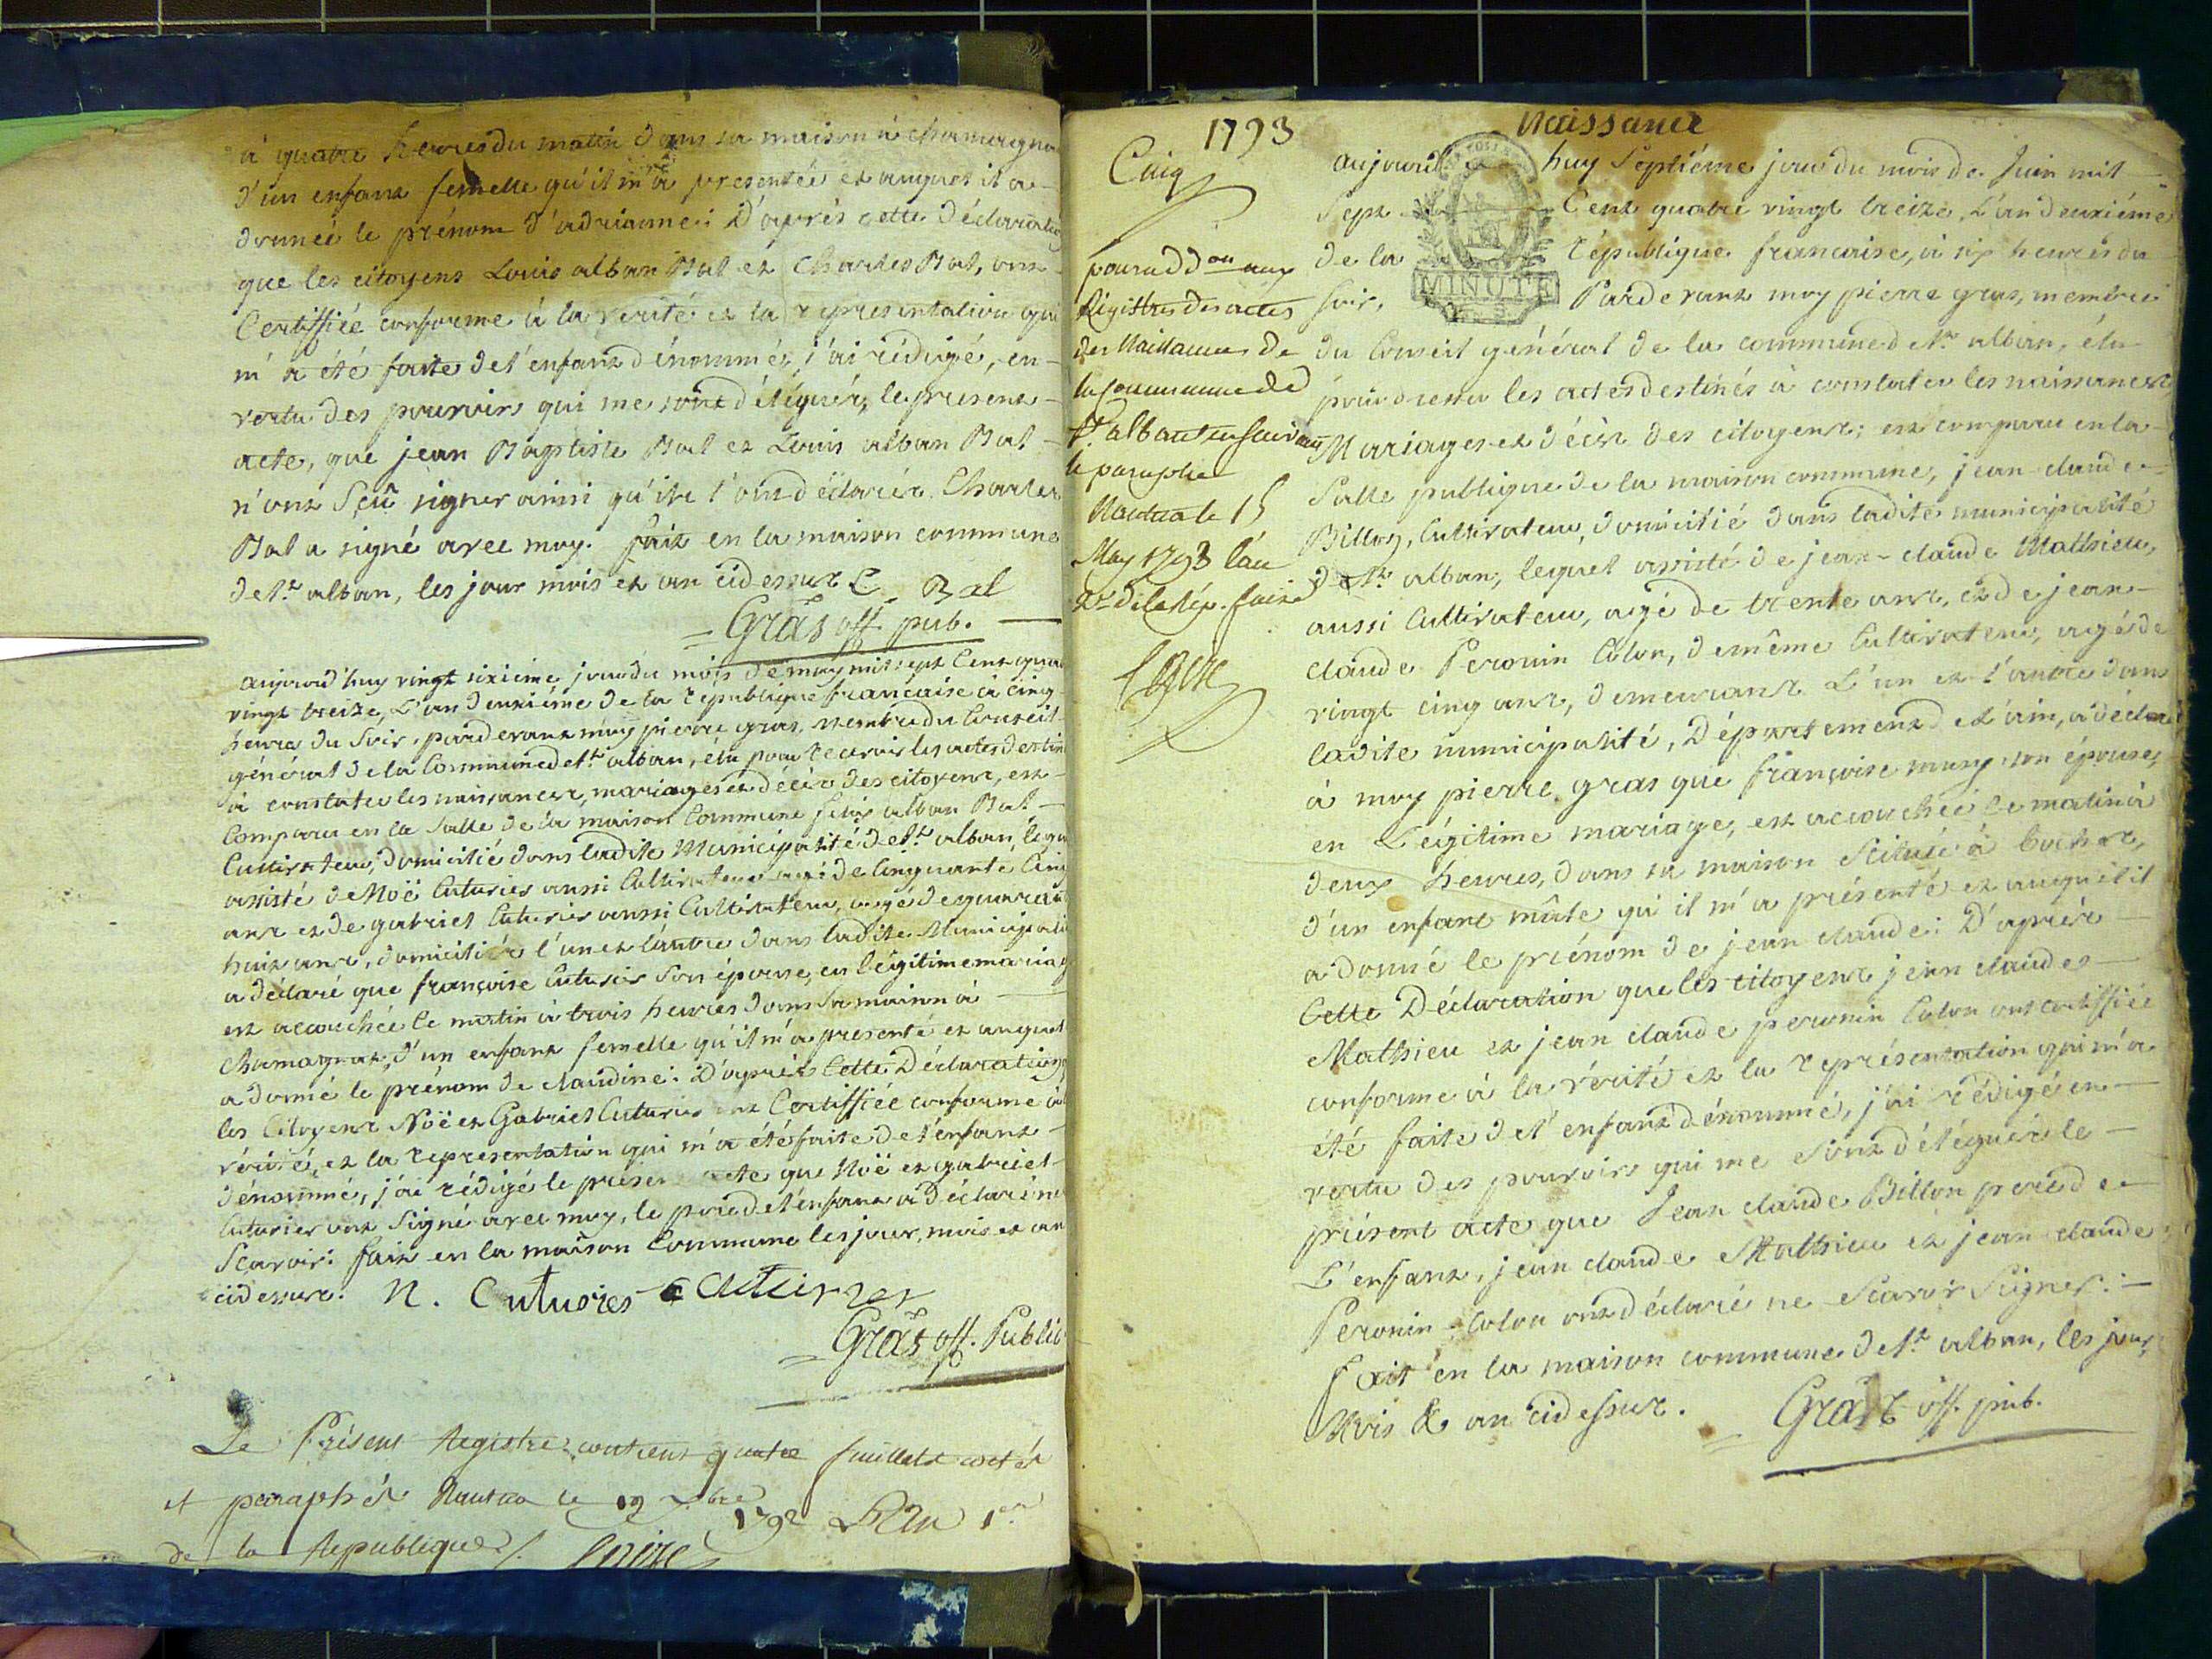 à quatre heures du matin dans sa maison à chamagna
d'un enfant femelle qu'il m'a presentée et auquel il a
donneé le prénom d'adrianne: D'après cette Déclaration
que les citoyens Louis alban Bal et Charles Bal, ont
Certiffiée conforme à la verité et la representation qui
m'a été faite de l'enfant dénommé, j'ai rédigé, en
vertu des pouvoirs qui me sont délégués, le present
acte, que jean Baptiste Bal et Louis alban Bal
n'ont Sçû signer ainsi qu'ils l'ont déclarés Charles
Bal a signé avec moy. fait en la maison commune
de St alban, les jour mois et an cidessus C. Bal
= Gras off. pub.
aujourd'huy vingt sixième jour du mois de may mil sept Cent quat
vingt treize, L'an deuxième de la république française à cinq
heures du Soir, pardevant moy pierre gras, membre du Conseil
général de la Commune de St alban, élu pour recevoir les actes destin
à constater les naissances, mariages et décès des citoyens, est
Comparu en la Salle de la maison Commune alban Bal
Cultivateur, domicilié dans ladite Municipalité de St alban, lequ
assisté de Noë Cuturier aussi Cultivateur agé de Cinquante Cinq
ans et de gabriel Cuturier aussi Cultivateur, agé de quarant
huit ans, domiciliés l'un et l'autre dans ladite Municipali
a déclaré que françoise Cuturier Son épouse, en légitime mariag
est accouchée ce matin à trois heures dans Sa maison à
chamagnat, d'un enfant femelle qu'il m'a presenté et auquel
a donné le prénom de claudine: D'après Cette Déclaration q
les Citoyens Noë et Gabriel Cuturier ont Certiffiée conforme à
vérité, et la representation qui m'a été faite de l'enfant
dénommé, j'ai rédigé le présen acte que Noë et gabriel
Cuturier ont Signé avec moy, le pere de l'enfant a déclaré ne
Scavoir: fait en la maison Commune les jour, mois et an
cidessus. N. Cuturier G Cuturier
= Gras off. Public
Le Présent Registre contient quatre feuillets cotés
et paraphés Nantua le 19 xbre 1792 L'an 1er
de la Republique /.
1793
Naissance
Cinq
pour addon aux
Registres des actes
des Naissances de
la Commune de
St alban en suivant
le paraphe
Nantua le 15
May 1793 l'an
2e de la Rép. faize
aujourd huy Septiéme jour du mois de Juin mil
Sept Cent quatre vingt treize, L'an deuxiéme
de la république francaise, à six heures du
Soir, Pardevant moy pierre gras, membre
MINUTE
du Conseil général de la commune de St alban, élu
pour dresser les actes destinés à constater les naissances
Mariages et décès des citoyens; est comparu en la
Salle publique de la maison commune, jean claude
Billon, Cultivateur, domicilié dans ladite municipalité
de St alban, lequel assisté de jean-claude Mathieu,
aussi Cultivateur, agé de trente ans, et de jean
claude Peronin Colon, de même Cultivateur, agé de
vingt cinq ans, demeurans L'un et l'autre dans
ladite municipalité, Département de L'ain, a déclaré
à moy pierre gras que françoise muny son épouse,
en Légitime mariage, est accouchée ce matin à
deux heures, dans sa maison Scituée à
d'un enfant mâle qu'il m'a présenté et auquel il
a donné le prénom de jean claude: D'après
Cette Déclaration que les citoyens jean claude
Mathieu et jean claude peronin Colon ont certiffiée
conforme à la vérité et la représentation qui m'a
été faite de l'enfant dénommé, j'ai rédigé en
vertu des pouvoirs qui me sont délégués le
présent acte que Jean claude Billon pere de
L'enfant, jean claude Mathieu et jean claude
Peronin-Colon ont déclaré ne Scavoir Signer:
Fait en la maison commune de St alban, les jour,
Mois & an cidessus. = Gras off. pub.